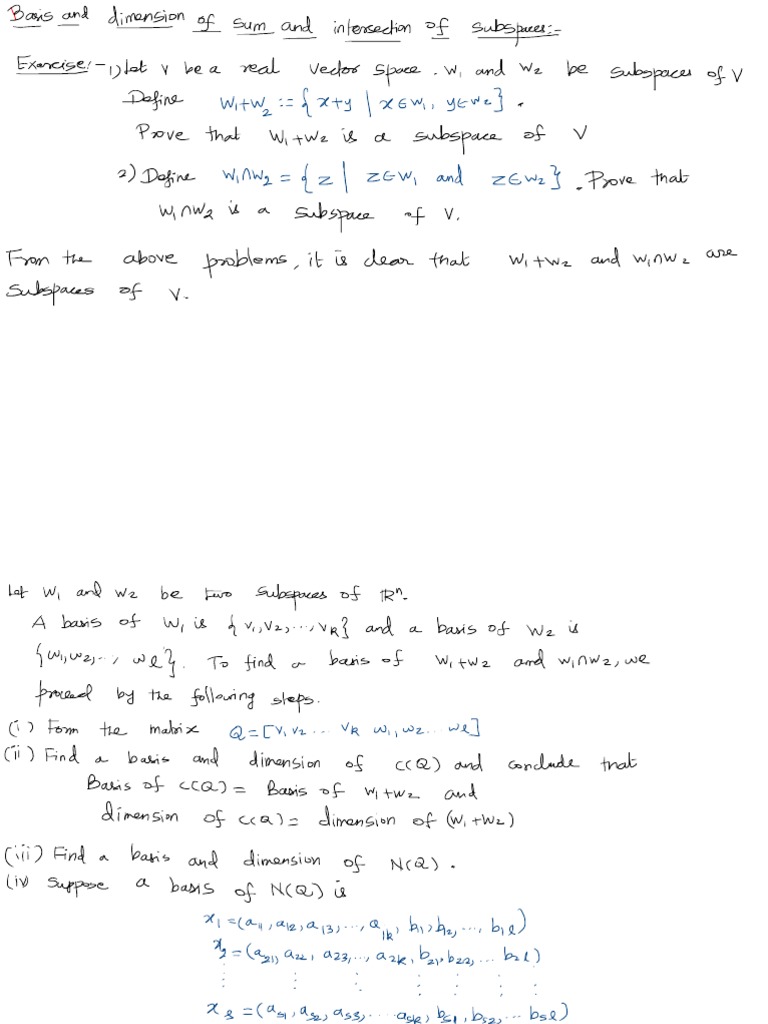 Basis and dimension of sum and intersection of subspaces:-
Exercise:- 1) Let V be a real vector space. W₁ and W₂ be subspaces of V
Define W₁+W₂ := { x+y | x∈W₁, y∈W₂ }.
Prove that W₁+W₂ is a subspace of V
2) Define W₁∩W₂ = { z | z∈W₁ and z∈W₂ }. Prove that
W₁∩W₂ is a subspace of V.
From the above problems, it is clear that W₁+W₂ and W₁∩W₂ are
subspaces of V.
Let W₁ and W₂ be two subspaces of ℝⁿ.
A basis of W₁ is {v₁,v₂,...,vₖ} and a basis of W₂ is
{w₁,w₂,..., wₗ}. To find a basis of W₁+W₂ and W₁∩W₂, we
proceed by the following steps.
(i) Form the matrix Q = [v₁ v₂ ... vₖ w₁, w₂ ... wₗ]
(ii) Find a basis and dimension of C(Q) and conclude that
Basis of C(Q) = Basis of W₁+W₂ and
dimension of C(Q) = dimension of (W₁+W₂)
(iii) Find a basis and dimension of N(Q).
(iv) Suppose a basis of N(Q) is
x₁ = (a₁₁, a₁₂, a₁₃, ..., a₁ₖ, b₁₁, b₁₂, ..., b₁ₗ)
x₂ = (a₂₁, a₂₂, a₂₃, ..., a₂ₖ, b₂₁, b₂₂, ... b₂ₗ)
⋮ ⋮ ⋮ ⋮ ⋮ ⋮ ⋮
xₛ = (aₛ₁, aₛ₂, aₛ₃, ... aₛₖ, bₛ₁, bₛ₂, ... bₛₗ)